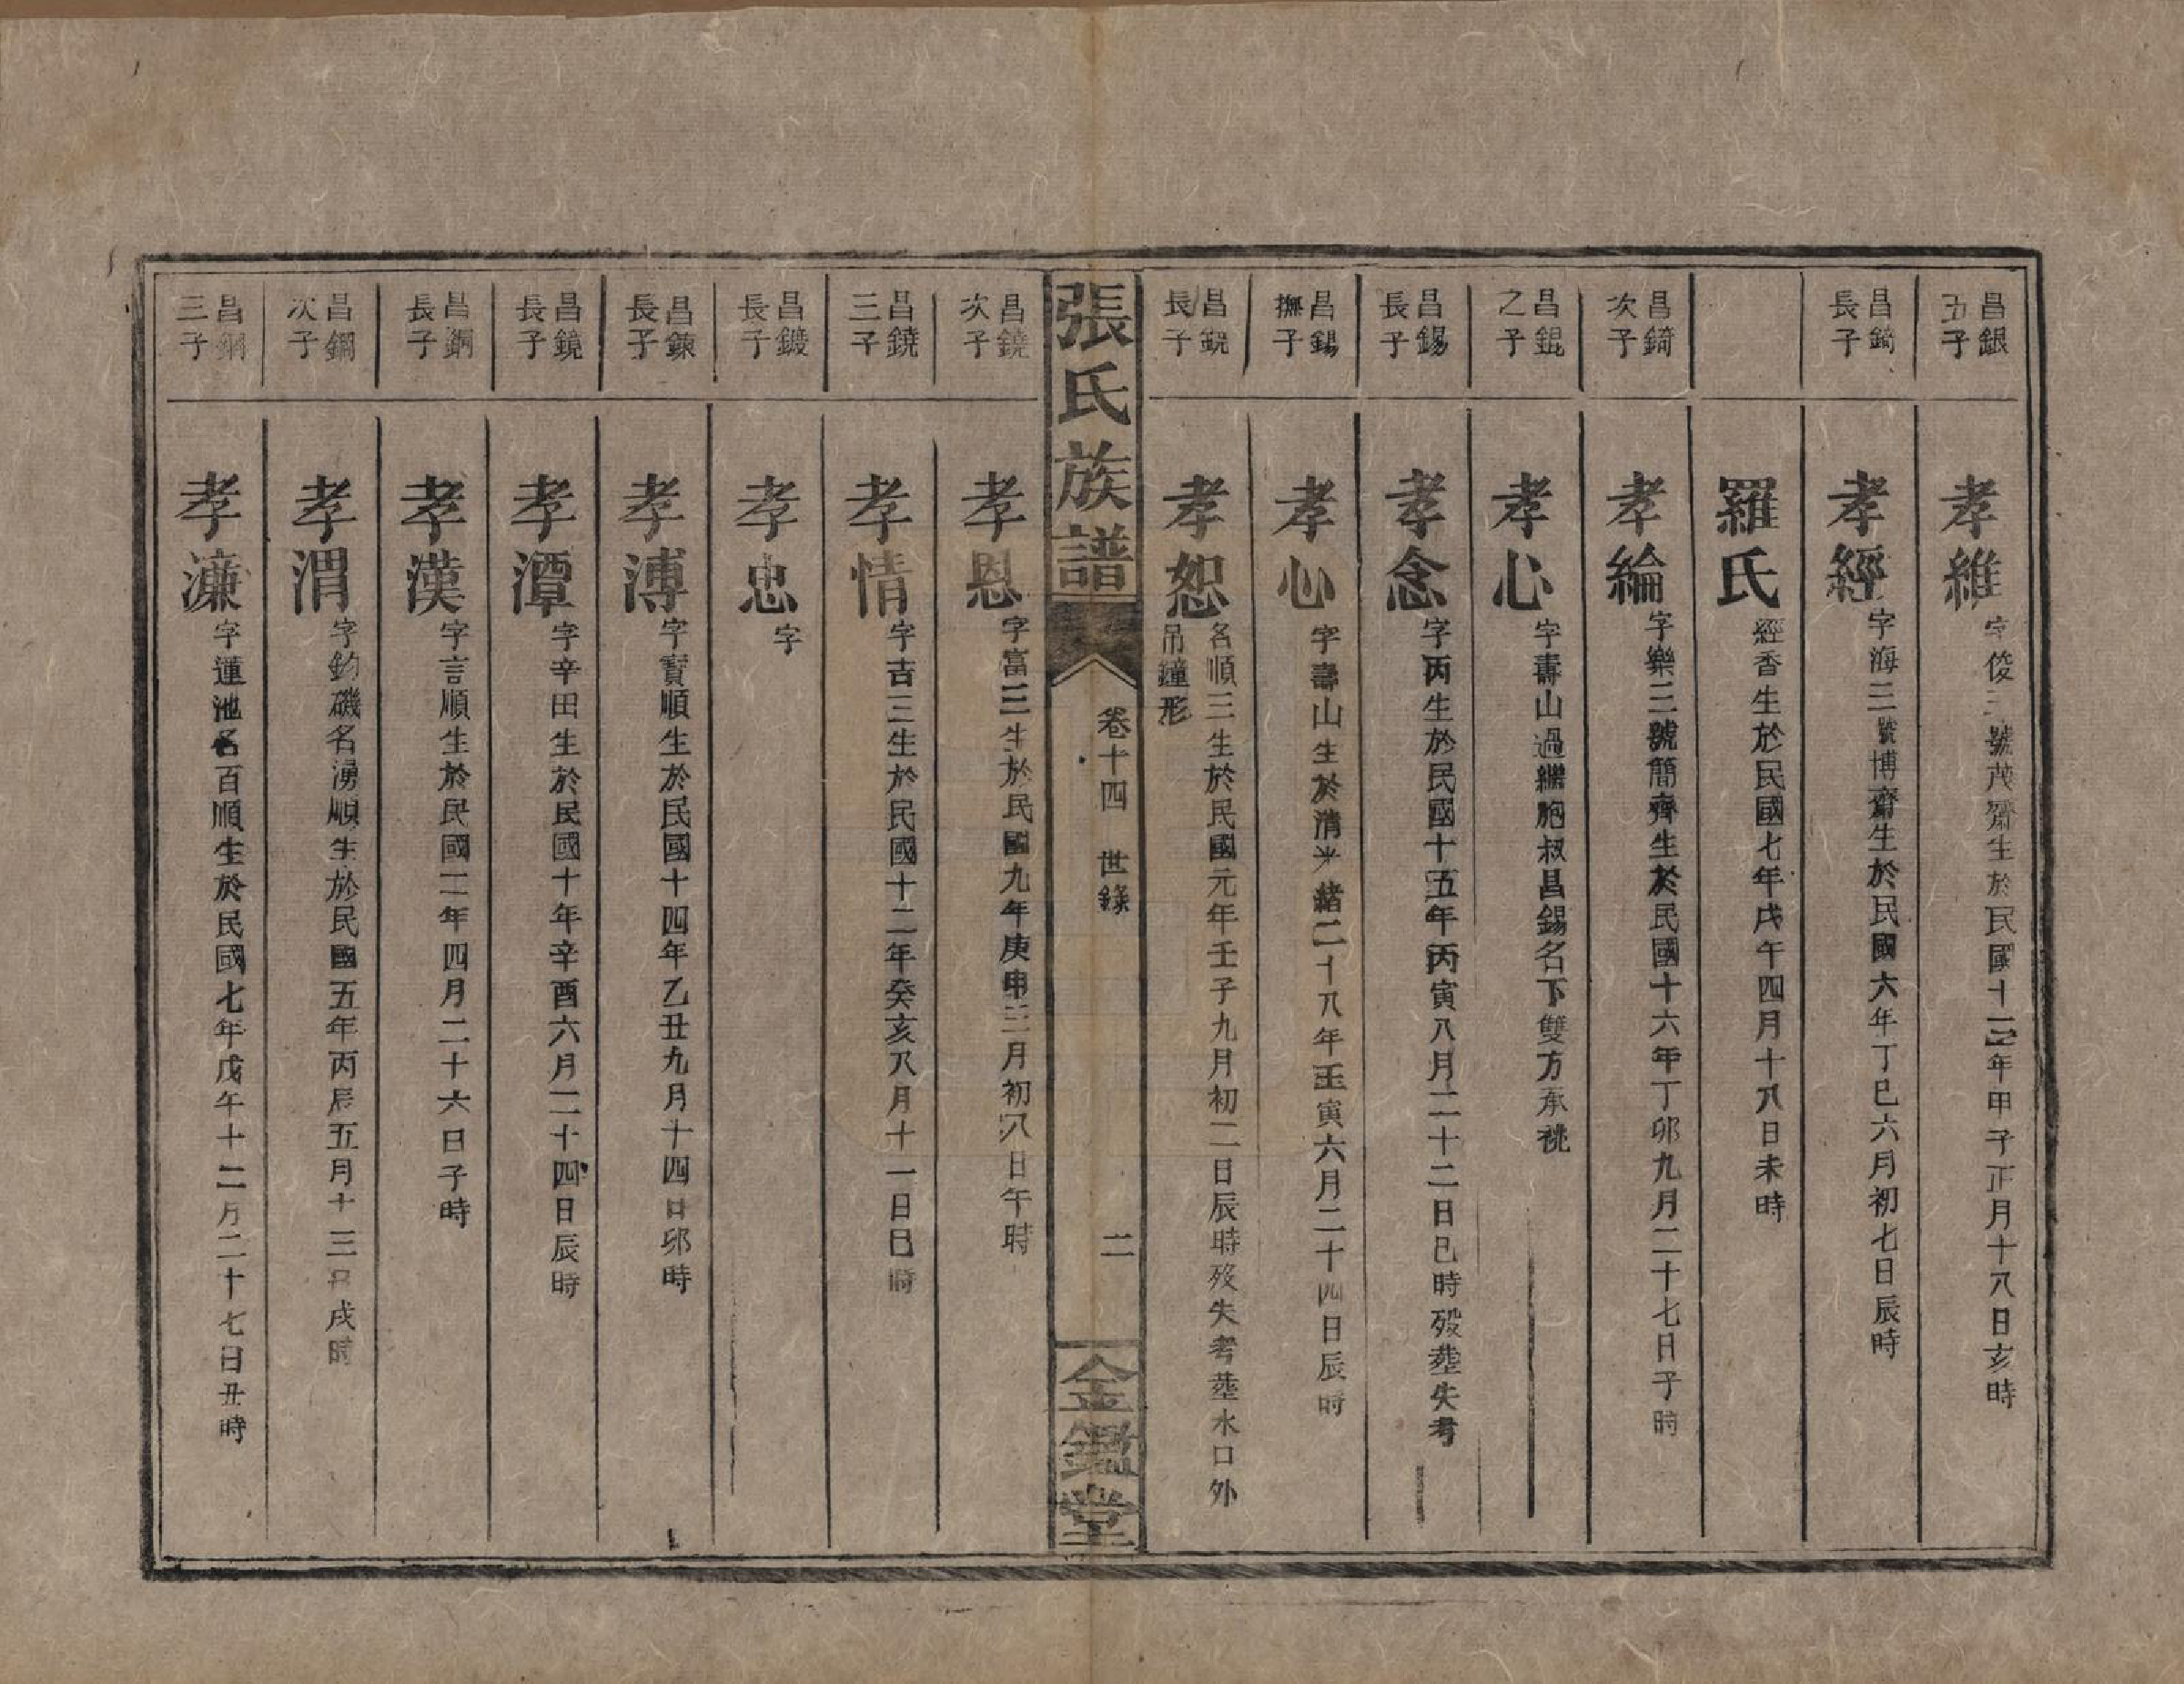 昌銀五子
孝維 字俊三號茂齋生於民國十三年甲子正月十八日亥時
昌錡長子
孝經 字海三號博齋生於民國六年丁巳六月初七日辰時
羅氏 經香生於民國七年戊午四月十八日未時
昌錡次子
孝綸 字樂三號簡齊生於民國十六年丁卯九月二十七日子時
昌錕之子
孝心 字壽山過繼胞叔昌錫名下雙方承祧
昌錫長子
孝念 字丙生於民國十五年丙寅八月二十二日巳時殁塟失考
昌錫撫子
孝心 字壽山生於清光緒二十八年壬寅六月二十四日辰時
昌銳長子
孝恕 名順三生於民國元年壬子九月初二日辰時歿失考塟水口外
吊鐘形
張氏族譜 卷十四 世錄 二 金鑑堂
昌鐃次子
孝恩 字富三生於民國九年庚申三月初八日午時
昌鐃三子
孝情 字吉三生於民國十二年癸亥八月十一日巳時
昌鍍長子
孝忠 字
昌鍊長子
孝溥 字寳順生於民國十四年乙丑九月十四日卯時
昌鏡長子
孝潭 字辛田生於民國十年辛酉六月二十四日辰時
昌鋼長子
孝漢 字言順生於民國二年四月二十六日子時
昌鋼次子
孝渭 字鈞磯名湧順生於民國五年丙辰五月十三日戌時
昌鋼三子
孝濂 字蓮池名百順生於民國七年戊午十二月二十七日丑時